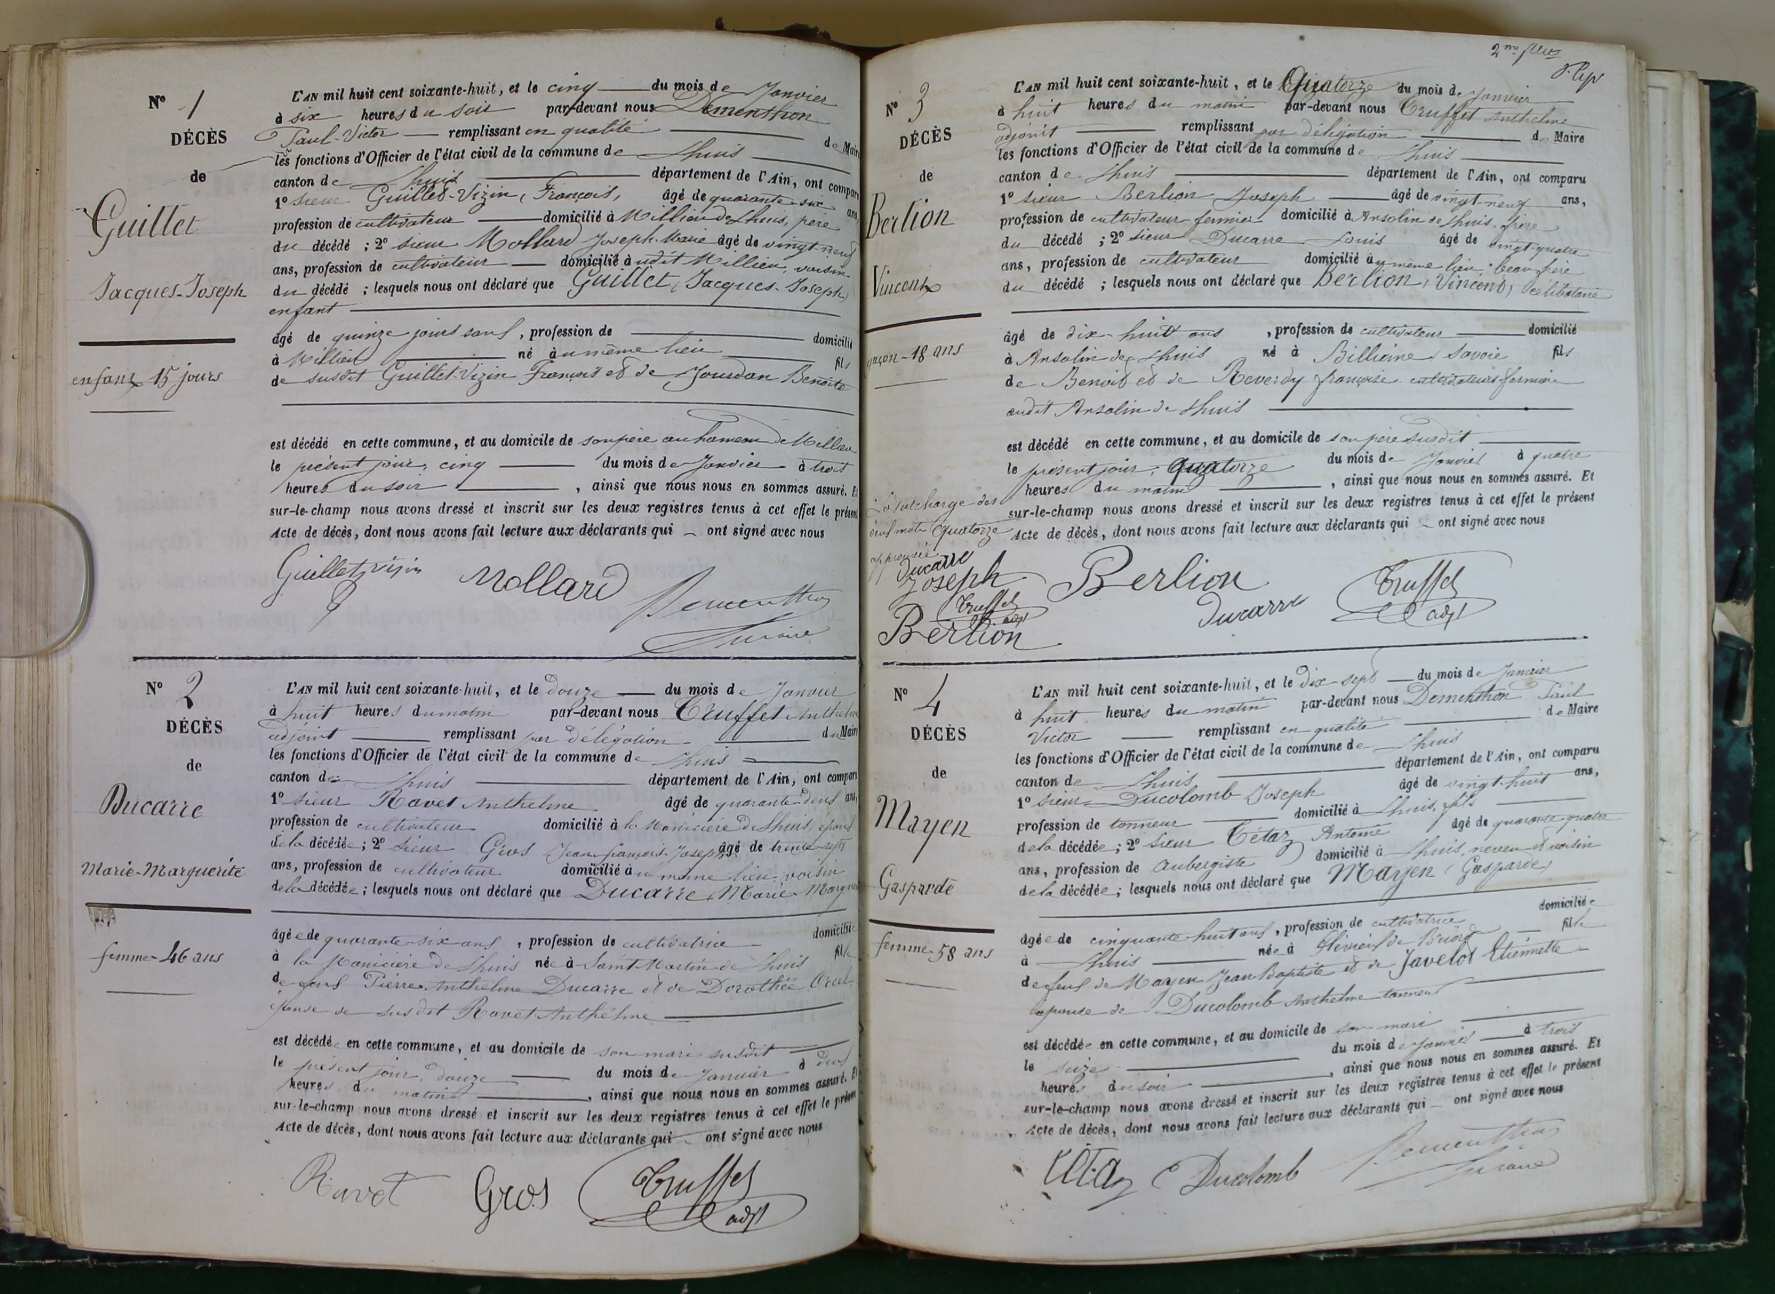 N° 1
DÉCÈS
de
Guillet
Jacques-Joseph
enfant 15 jours
L'AN mil huit cent soixante-huit, et le cinq du mois de Janvier
à six heures du soir par-devant nous Dementhon
Paul-Victor remplissant en qualité de Maire
les fonctions d'Officier de l'état civil de la commune de Lhuis
canton de Lhuis département de l'Ain, ont comparu
1° sieur Guillet-Vizin, François, âgé de quarante six ans,
profession de cultivateur domicilié à Millieu de Lhuis, père
du décédé ; 2° sieur Mollard Joseph-Marie âgé de vingt neuf
ans, profession de cultivateur domicilié à udit Millieu, voisin
du décédé ; lesquels nous ont déclaré que Guillet, Jacques-Joseph,
enfant
âgé de quinze jours sans, profession de domicilié
à Millieu né à u même lieu fils
de susdit Guillet-Vizin François et de Jourdan Benoite
est décédé en cette commune, et au domicile de son père au hameau de Millieu
le présent jour, cinq du mois de Janvier à trois
heures du soir, ainsi que nous nous en sommes assuré. Et
sur-le-champ nous avons dressé et inscrit sur les deux registres tenus à cet effet le présent
Acte de décès, dont nous avons fait lecture aux déclarants qui ont signé avec nous
Guillet vizin Mollard Dementhon
maire
N° 2
DÉCÈS
de
Ducarre
Marie-Marguerite
femme-46 ans
L'AN mil huit cent soixante-huit, et le douze du mois de Janvier
à huit heures du matin par-devant nous Truffet Anthelme
adjoint remplissant par délégation du Maire
les fonctions d'Officier de l'état civil de la commune de Lhuis
canton de Lhuis département de l'Ain, ont comparu
1° sieur Ravet Anthelme âgé de quarante deux ans,
profession de cultivateur domicilié à la de Lhuis, époux
de la décédée ; 2° sieur Gros Jean-françois-Joseph âgé de trente sept
ans, profession de cultivateur domicilié à u même lieu, voisin
de la décédée ; lesquels nous ont déclaré que Ducarre, Marie-
âgée de quarante-six ans, profession de cultivatrice domiciliée
à la de Lhuis née à Saint Martin de Lhuis fille
de feus Pierre-Anthelme Ducarre et de Dorothée
épouse de susdit Ravet Anthelme
est décédée en cette commune, et au domicile de son mari susdit
le présent jour, douze du mois de Janvier à deux
heures du matin, ainsi que nous nous en sommes assuré. Et
sur-le-champ nous avons dressé et inscrit sur les deux registres tenus à cet effet le présent
Acte de décès, dont nous avons fait lecture aux déclarants qui ont signé avec nous
Ravet Gros Truffet
adjt
N° 3
DÉCÈS
de
Berlion
Vincent
garçon-18 ans
L'AN mil huit cent soixante-huit, et le Quatorze du mois de Janvier
à huit heures du matin par-devant nous Truffet Anthelme
adjoint remplissant par délégation de Maire
les fonctions d'Officier de l'état civil de la commune de Lhuis
canton de Lhuis département de l'Ain, ont comparu
1° sieur Berlion Joseph âgé de vingt neuf ans,
profession de cultivateur fermier domicilié à Ansolin de Lhuis, frère
du décédé ; 2° sieur Ducarre Louis âgé de vingt quatre
ans, profession de cultivateur domicilié à u même lieu, beau frère
du décédé ; lesquels nous ont déclaré que Berlion, Vincent, célibataire
âgé de dix-huit ans, profession de cultivateur domicilié
à Ansolin de Lhuis né à Billième Savoie fils
de Benoit et de Reverdy françoise cultivateurs fermiers
audit Ansolin de Lhuis
est décédé en cette commune, et au domicile de son père susdit
le présent jour, quatorze du mois de Janvier à quatre
heures du matin, ainsi que nous nous en sommes assuré. Et
sur-le-champ nous avons dressé et inscrit sur les deux registres tenus à cet effet le présent
Acte de décès, dont nous avons fait lecture aux déclarants qui ont signé avec nous
La surcharge des
deux mots quatorze
approuvée
Ducarre
Joseph
Truffet
adjt
Berlion
Berlion Ducarre Truffet
adjt
N° 4
DÉCÈS
de
Mayen
Gasparde
femme-58 ans
L'AN mil huit cent soixante-huit, et le dix-sept du mois de Janvier
à huit heures du matin par-devant nous Dementhon Paul
Victor remplissant en qualité de Maire
les fonctions d'Officier de l'état civil de la commune de Lhuis
canton de Lhuis département de l'Ain, ont comparu
1° sieur Ducolomb Joseph âgé de vingt-huit ans,
profession de tonneur domicilié à Lhuis, fils
de la décédée ; 2° sieur Tétaz Antoine âgé de quarante-quatre
ans, profession de aubergiste domicilié à Lhuis, neveu et voisin
de la décédée ; lesquels nous ont déclaré que Mayen, Gasparde,
âgée de cinquante-huit ans, profession de cultivatrice domiciliée
à Lhuis née à de fille
de feus de Mayen Jean Baptiste et de Javelot Etiennette
épouse de Ducolomb Anthelme tonneur
est décédée en cette commune, et au domicile de son mari
le seize du mois de Janvier à trois
heures du soir, ainsi que nous nous en sommes assuré. Et
sur-le-champ nous avons dressé et inscrit sur les deux registres tenus à cet effet le présent
Acte de décès, dont nous avons fait lecture aux déclarants qui ont signé avec nous
Ducolomb Dementhon
maire